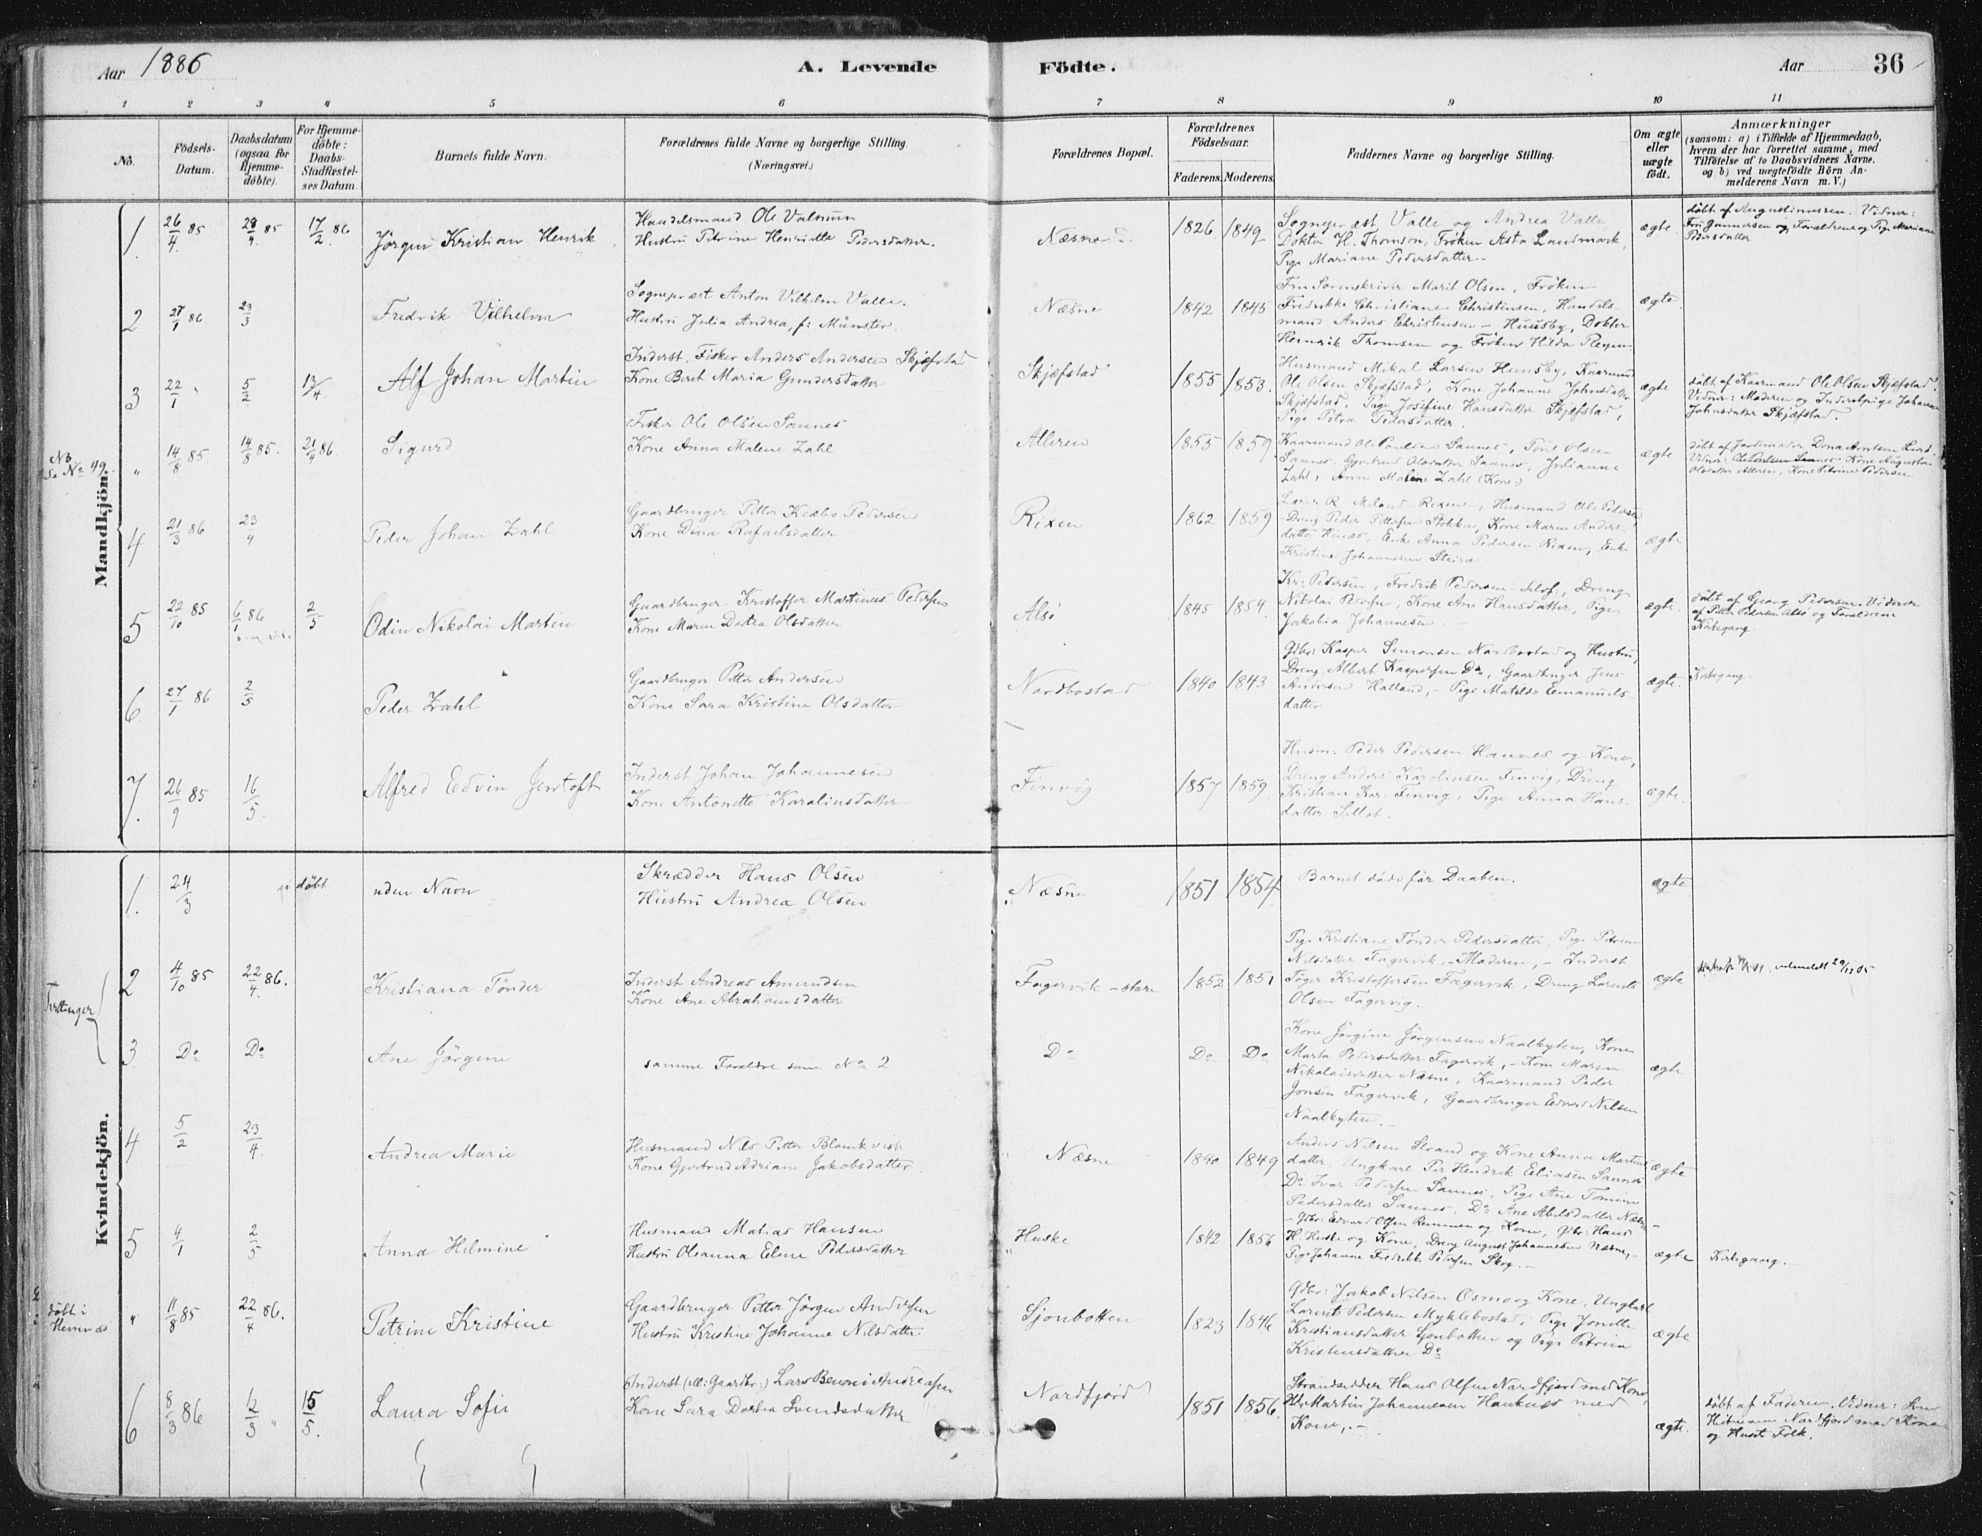 Aar 1886
A. Levende Födte.
Aar 36
1 2 3 4 5 6 7 8 9 10 11
No.
Födsels-Datum.
Daabsdatum (ogsaa for Hjemme-döbte).
For Hjemme-döbte: Daabs-Stadfæstel-ses Datum.
Barnets fulde Navn.
Forældrenes fulde Navne og borgerlige Stilling. (Næringsvei.)
Forældrenes Bopæl.
Forældrenes Födselsaar.
Faderens. Moderens.
Faddernes Navne og borgerlige Stilling.
Om ægte eller uægte födt.
Anmærkninger
(saasom: a) i Tilfælde af Hjemmedaab,
hvem der har forrettet samme, med
Tilföielse af to Daabsvidners Navne.
og b) ved uægtefödte Börn An-
melderens Navn m. V.)
Mandkjön.
1. 26/4 85 28/4 85 17/2 86 Jörgen Kristian Henrik
Handelsmand Ole Valnum
Hustru Petrine Henriette Pedersdatter.
Næsne 1826 1849
Sogneprest Valle og Andrea Valle,
Doktor H. Thomsen, Fröken Asta Landmark,
Pige Mariane Pedersdatter.-
ægte
döbt af Augustinussen. Vidner:
Fru Gunnersen og Forældrene og Pige Mariane
Pedersdatter
2 27/1 86 23/3 Fredrik Vilhelm
Sogneprest Anton Vilhelm Valle.
Hustru Julia Andrea, f: Münster.
Næsne 1842 1845
Fru Sorenskriver Marit Olsen, Fröken
Fredrikke Christiane Christensen, Handels-
mand Anders Christensen - Huusby, Doktor
Henrik Thomsen og Fröken Hilda
ægte.
3 22/1 " 5/2 13/4 Alf Johan Martin
Inderst. Fisker Anders Andersen Skjæfstad
Kone Berit Maria Gundersdatter
Skjæfstad 1855 1853.
Husmand Mikal Larsen Huusby, Kaarmand
Ole Olsen Skjæfstad, Kone Johanne Johnsdatter
Skjæfstad, Pige Josefine Hansdatter Skjæfstad,
Pige Petra Pedersdatter.
ægte
döbt af Kaarmand Ole Olsen Skjæfstad.
Vidner: Moderen og Inderstpige Johanne
Johnsdatter Skjæfstad.
Nb. Se No 49.
" 14/8 85 14/8 85. 21/4 86. Sigurd
Fisker Ole Olsen Sannes
Kone Anna Malene Zahl
Alteren 1855 1859
Kaarmand Ole Paulsen Sannes, Tone Olsen
Sannes, Gjertrud Olsdatter Sannes, Julianne
Zahl, Anne Malene Zahl (Kone)
ægte
döbt af Jordemoder Dona Arntsen Lund.
Vidner: Ole Paulsen Sannes Kone Augusta
Olsdatter Alteren, Kone Petrine Pedersen
4 21/3 86 23/4 Peder Johan Zahl
Gaardbruger Petter Kræbo Pedersen
Kone Dina Rafaelsdatter
Rixen 1862 1859
Miland Rixen, Husmand Ole Pedersen
Dreng Peder Pettersen Stokka, Kone Maren Anders-
datter Hinæs, Enke Anna Pedersen Rixen, Enke
Kristine Johannesen Steira.
ægte
5 22/10 85 6/1 86 2/5 Odin Nikolai Martin
Gaardbruger Kristoffer Martinus Pedersen
Kone Maren Dortea Olsdatter
Alsö 1845 1854.
Kr: Pedersen, Fredrik Pedersen Selsö, Dreng
Nikolai Pedersen, Kone Ane Hansdatter, Pige
Jakobia Johannesen. -
ægte.
döbt af Georg Pedersen. Vidner
af Petter Pedersen Alsö og Forældrene
Kirkegang.
6 27/1 86 2/5 Peder Zahl
Gaardbruger Petter Andersen
Kone Sara Kristine Olsdatter
Nordbostad 1840 1843
Gdbr: Kasper Simonsen Nordbostad og Hustru,
Dreng Albert Kaspersen Do, Gaardbruger Jens
Andersen Halland, - Pige Matilde Emanuels-
datter
ægte.
Kirkegang.
7. 26/9 85 16/5. Alfred Edvin Jentoft
Inderst Johan Johannesen
Kone Antonette Karolinsdatter
Finvig 1857 1859.
Husm: Peder Pedersen Hannes og Kone,
Dreng Anders Karolinsen Finvig, Dreng
Kristian Kar: Finvig, Pige Anna Hans-
datter Sillot.
ægte.
Kvindekjön.
1. 24/3 u döbt uden Navn
Skrædder Hans Olsen
Hustru Andrea Olsen
Næsne 1851 1854
Barnet döde för Daaben.
ægte
Tvillinger
2 4/10 85 22/4. 86. Kristiana Tönder
Inderst Andreas Amundsen
Kone Ane Abrahamsdatter
Fagervik - 1852 1851
Pige Kristiane Tönder Pedersdatter, Pige Petrine
Nilsdatter Fagervik, - Moderen, - Inderst
Töger Kristoffersen Fagervik, Dreng Lorents
Olsen Fagervig.
ægte
3 Do Do Ane Jörgine
samme Forældre som No 2
Do Do Do
Kone Jörgine Jörgensen Naalkyten, Kone
Marta Pedersdatter Fagervik, - Kone Maren
Nikolaisdatter Næsne, Kaarmand Peder
Jonsen Fagervik, Gaardbruger Edvard Nilsen
Naalkyten.-
ægte
4 5/2 23/4. Andrea Marie
Husmand Nils Petter Blomkvist
Kone Gjertrud Adriane Jakobsdatter
Næsne 1840 1849
Anders Nilsen Strand og Kone Anna Martins-
datter, Ungkarl Per Hendrik Eliasen Sannes
Do Ivar Pedersen Sannes, Pige Ane Tomine
Pedersdatter Sannes, Do Ane Abelsdatter Næsne
ægte
5 4/1 2/5 Anna Helmine
Husmand Matias Hansen
Hustru Oleanna Eline Pedersdatter
Huske 1842 1856
- Gdbr: Edvard Olsen Remmen og Kone, Gdbr: Hans
H. Huske og Kone, Dreng August Johannesen Næsne, -
Pige Johanne Fredrikke Petersen Skog.-
ægte
Kirkegang.-
döbt i Hemnæs
" 11/8 85 22/4 86. Petrine Kristine
Gaardbruger Petter Jörgen Andersen
Hustru Kristine Johanne Nilsdatter
Sjonbotten 1823 1846
Gdbr: Jakob Nilsen Osmo og Kone, Ungkarl
Lorents Pedersen Myklebostad, Pige Jonette
Kristiansdatter Sjonbotten og Pige Petrine
Kristensdatter Do
ægte
6 8/3 86 12/3 " 15/5. Laura Sofie
Inderst (ell: Gaardbr:) Lars Benoni Andreasen
Kone Sara Dortea Svendsdatter
Nordfjord 1851 1856.
Strandsidder Hans Olsen Nordfjord med Kone,
Martin Johannesen Hauknes med
Kone,.-
ægte.
döbt af Faderen. Vidner:
Nordfjord med Kone
og Husets Folk.